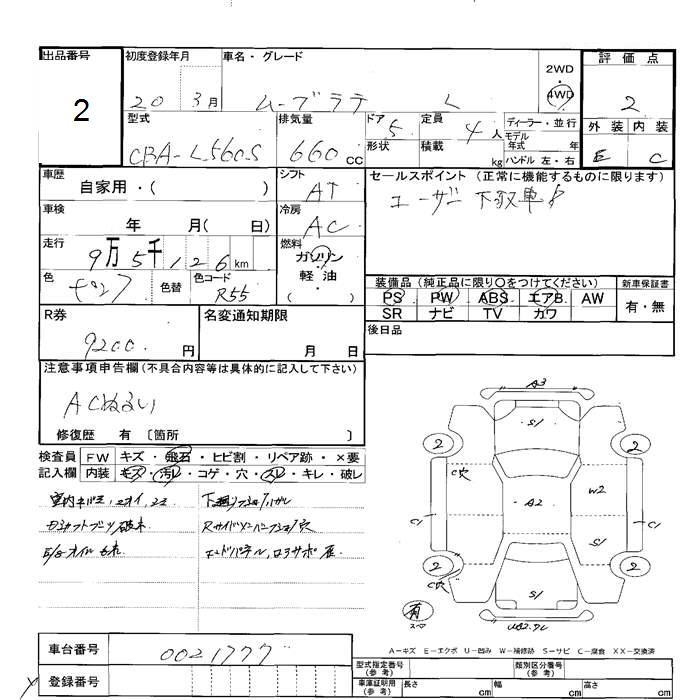 出品番号
2
初度登録年月
20 3月
車名・グレード
ムーブラテ L
2WD
・
4WD
評価点
2
外装 内装
E C
型式
CBA-L560S
排気量
660 CC
ドア 5
形状
定員 4 人
積載 kg
ディーラー・並行
モデル
年式 年
ハンドル 左・右
車歴
自家用・( )
シフト
AT
車検
年 月( 日)
冷房
AC
走行
9万5千126km
燃料
ガソリン
軽油
( )
色
色替
色コード
R55
セールスポイント (正常に機能するものに限ります)
ユーザー下取車
装備品(純正品に限り○をつけてください)
PS PW ABS エアB. AW
SR ナビ TV カワ
新車保証書
有・無
後日品
R券
9200 円
名変通知期限
月 日
注意事項申告欄(不具合内容等は具体的に記入して下さい)
ACぬるい
修復歴 有 〔箇所 〕
検査員
記入欄
FW キズ・飛石・ヒビ割・リペア跡・×要
内装 モケ・汚レ・コゲ・穴・スレ・キレ・破レ
Dシャフトブーツ破れ
E/gオイルもれ
A3
S1
2
2
C穴
A2
W2
C1
C1
S1
2
2
C穴
S1
有
スペア
車台番号
0021777
登録番号
A-キズ E-エクボ U-凹み W-補修跡 S-サビ C-腐食 XX-交換済
型式指定番号
(参考)
類別区分番号
(参考)
車庫証明用
(参考)
長さ cm 幅 cm 高さ cm